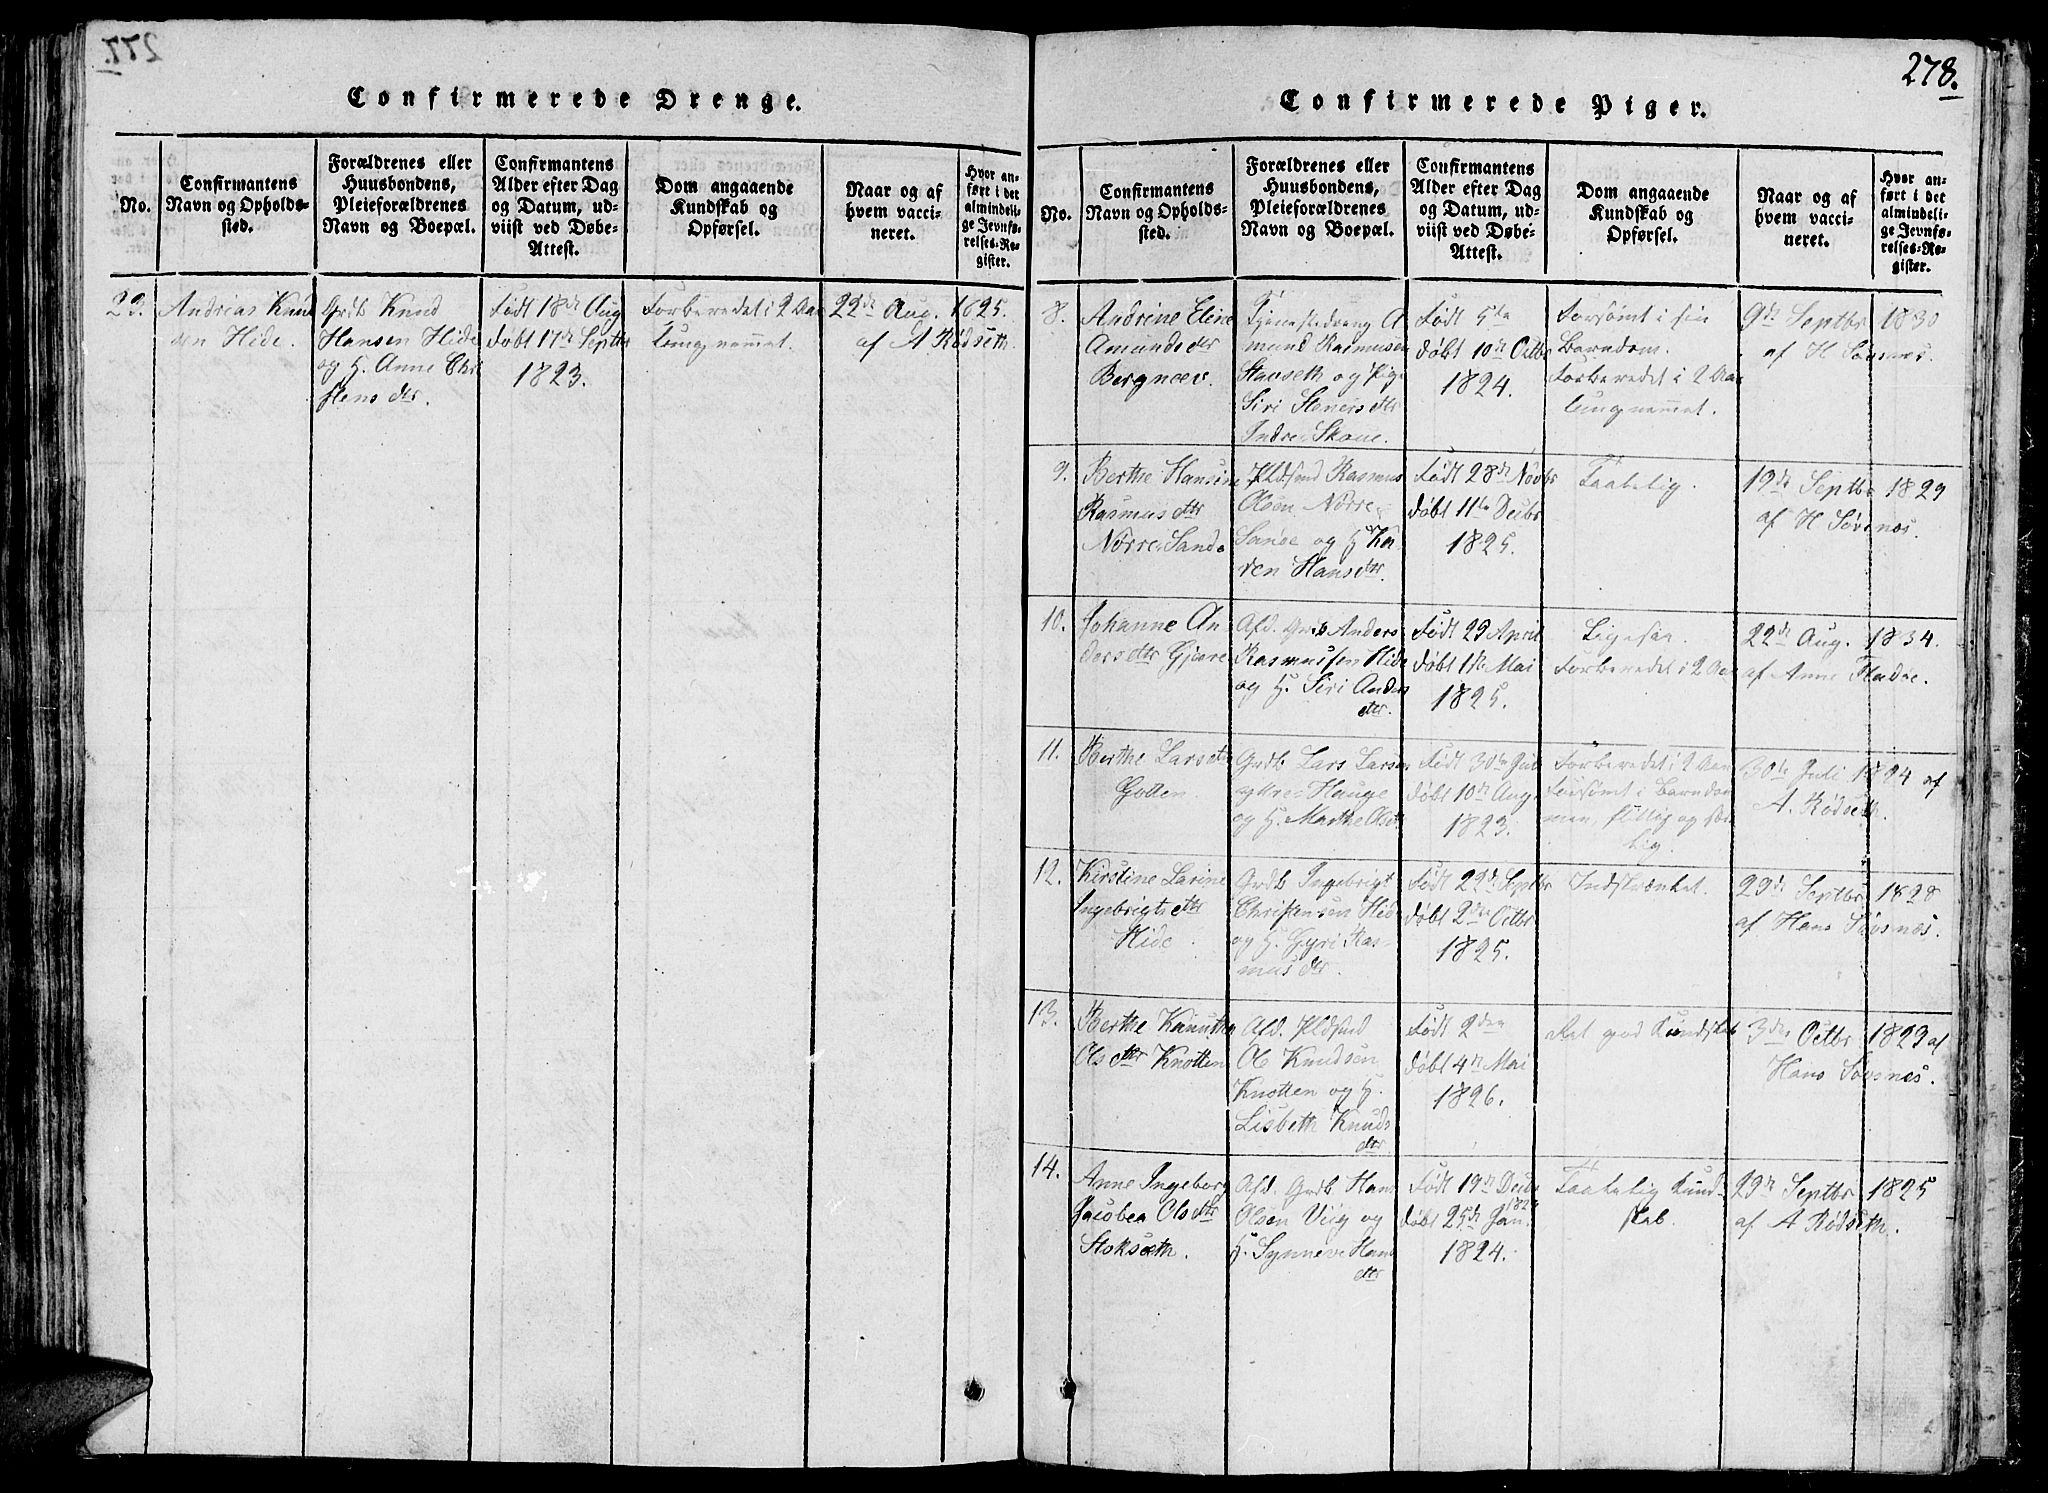 277.
Confirmerede Drenge.
No.
Confirmantens
Navn og Opholds-
sted.
Forældrenes eller
Huusbondens,
Pleieforældrenes
Navn og Boepæl.
Confirmantens
Alder efter Dag
og Datum, ud-
viist ved Døbe-
Attest.
Dom angaaende
Kundskab og
Opførsel.
Naar og af
hvem vacci-
neret.
Hvor an-
ført i det
almindeli-
ge Jevnfø-
relses-Re-
gister.
23.
Andrias Knud
sen Hide.
Grdb Knud
Hansen Hide
og H. Anne Chri
stensdtr.
Født 18de Aug
døbt 17de Septbr
1823.
Forberedet i 2 Aar
tungnemmet.
22de Aug. 1825.
af A Rødseth.
278.
Confirmerede Piger.
No.
Confirmantens
Navn og Opholds-
sted.
Forældrenes eller
Huusbondens,
Pleieforældrenes
Navn og Boepæl.
Confirmantens
Alder efter Dag
og Datum, ud-
viist ved Døbe-
Attest.
Dom angaaende
Kundskab og
Opførsel.
Naar og af
hvem vacci-
neret.
Hvor an-
ført i det
almindeli-
ge Jevnfø-
relses-Re-
gister.
8.
Andrine Eline
Amundsdtr
Bergneev.
Tjenestedreng A
mund Rasmussen
Stavseth og Pige
Siri Steners dtr
Indre Skoue.
Født 5te
døbt 10de Octbr
1824.
Forsømt i sin
Barndom.
Forberedet i 2 Aar
tungnemmet.
9de Septbr 1830
af H Søvsnæs.
9.
Berthe Hansine
Rasmusdtr
Nørre-Sande
Pldsmd Rasmus
Olsen Nørre-
Sande og H Ka-
ren Hansdtr.
Født 28de Novbr
døbt 11te Decbr
1825.
Taalelig.
19de Septbr 1829
af H Søvsnæs.
10.
Johanne An
dersdtr Gjære
Afd. Grdb Anders
Rasmussen Hide
og H. Siri Anders
dtr.
Født 29 April
døbt 1de Mai
1825.
Ligesaa.
Forberedet i 2 Aar
22de Aug. 1834.
af Anne Fladøe.
11.
Berthe Larsdtr
Gotten
Grdb Lars Larsen
ytre-Hauge
og H. Marthe Olsdtr
Født 30te Juli
døbt 10de Aug.
1823.
Forberedet i 2 Aar
forsømt i Barndom
men, flittig og sæ
lig.
30te Juli 1824 af
A. Rødseth.
12.
Kirstine Larine
Ingebrigtsdtr
Hide
Grdb Ingebrigt
Christensen Hide
og H. Gyri Ras-
musdtr.
Født 22de Septbr
døbt 2den Octbr
1825.
Indskrænket.
29de Septbr 1828
af Hans Søvsnæs.
13.
Berthe Kanutha
Olsdtr Knotten
Afd. Pldsmd
Ole Knudsen
Knotten og H.
Lisbeth Knuds
dtr
Født 2den
døbt 4de Mai
1826.
Ret god Kundskab
3die Octbr 1829 af
Hans Søvsnæs.
14.
Anne Ingeborg
Jacobea Olsdtr
Stokseth.
Afd. Grdb Hans
Olsen Viig og
H. Synneve Hans
dtr
Født 19de Decbr
døbt 25de Jan.
1824.
Taalelig Kund-
skab.
29de Septbr 1825
af A Rødseth.